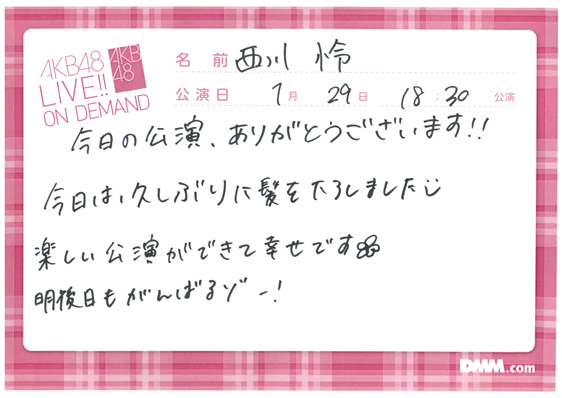 AKB48
LIVE!!
ON DEMAND
AKB
48
名前 西川 怜
公演日 7月 29日 18:30 公演
今日の公演、ありがとうございます!!
今日は、久しぶりに髪を下ろしました
楽しい公演ができて幸せです
明後日もがんばるゾー!
DMM.com